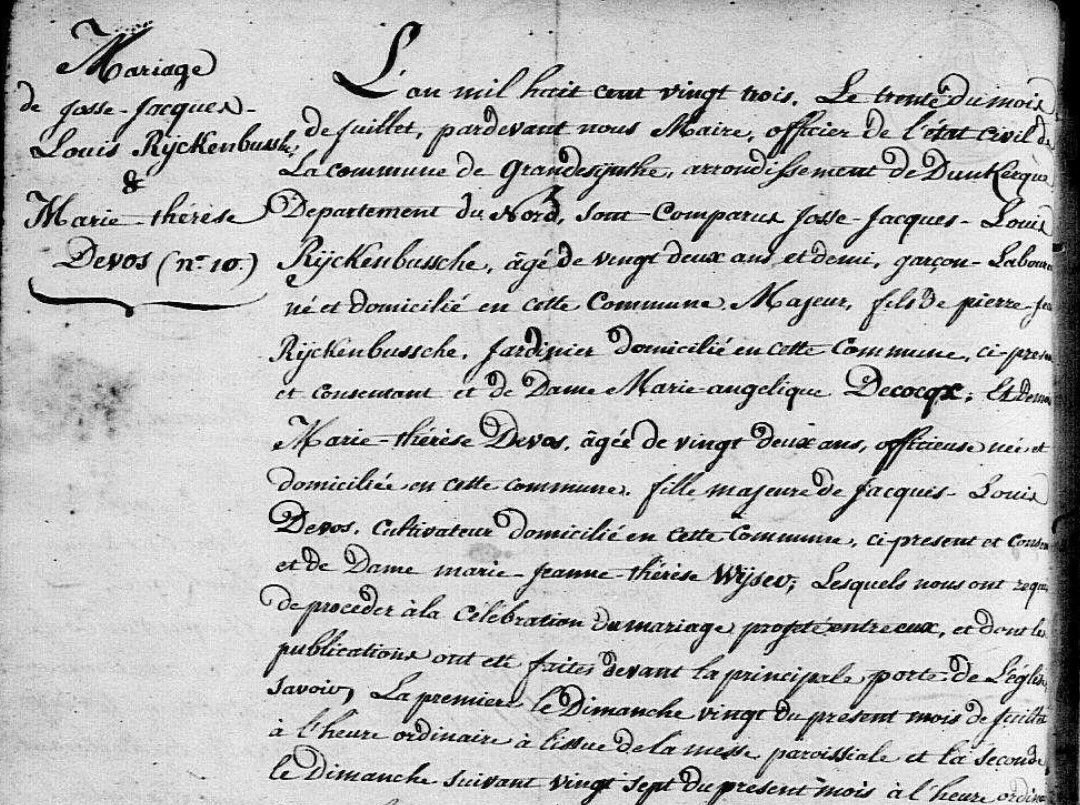 Mariage
de Josse-Jacques-
Louis Rÿckenbussche,
&
Marie-thérèse
Devos (nº 10.)
L'an mil huit cent vingt trois. Le trente du mois
de Juillet, pardevant nous Maire, officier de l'état civil de
La commune de Grandesÿnthe, arrondissement de Dunkerque
Departement du Nord, sont Comparus Josse-Jacques-Louis
Rÿckenbussche, âgé de vingt deux ans et demi, garçon-Laboure
né et domicilié en cette Commune. Majeur, fils de pierre-
Rÿckenbussche, Jardinier domicilié en cette Commune, ci-presen
et consentant et de Dame Marie-angelique Decocqx; Et Demoi
Marie-thérèse Devos, âgée de vingt deux ans, officieuse née et
domiciliée en cette commune. fille majeure de Jacques-Louis
Devos, Cultivateur domicilié en cette Commune, ci-present et Consen
et de Dame marie-Jeanne-thérèse Wÿsev; Lesquels nous ont requ
de proceder à la Célébration du mariage projeté entre eux, et dont les
publications ont été faites devant la principale porte de L'église,
savoir, La premiere le Dimanche vingt du present mois de Juillet
à l'heure ordinaire à l'issue de la messe paroissiale et la seconde,
le Dimanche suivant vingt sept du present mois à l'heure ordina